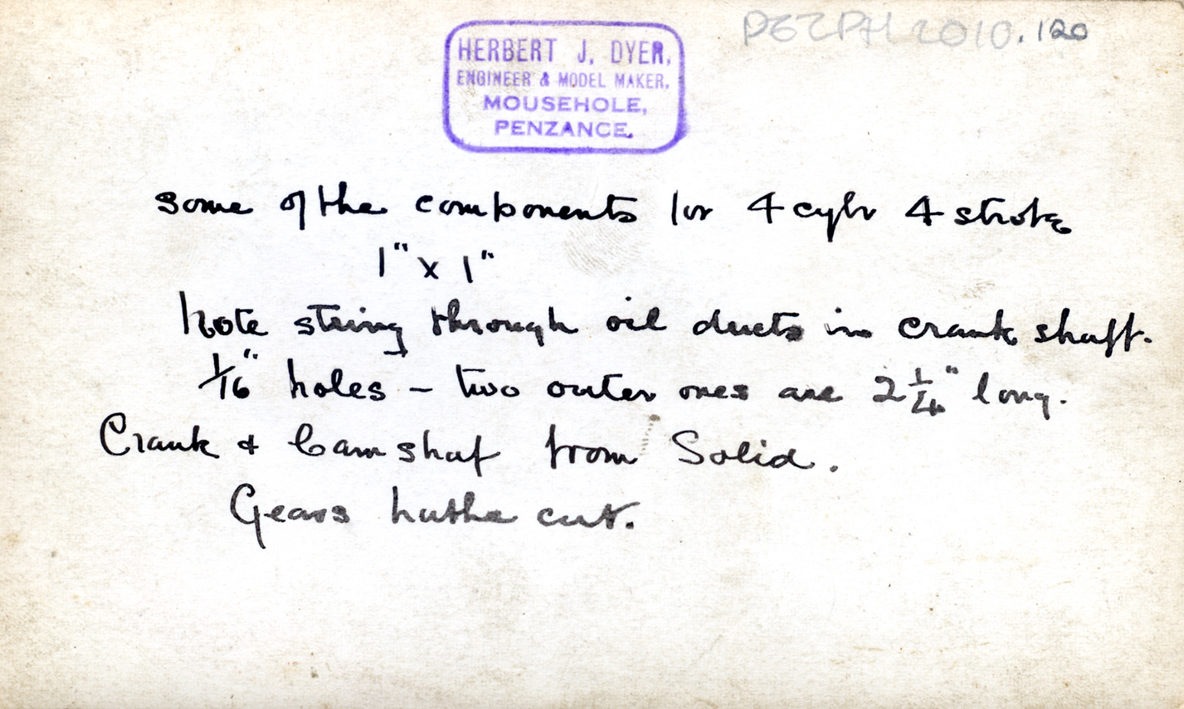 PEZPH 2010.120
HERBERT J. DYER,
ENGINEER & MODEL MAKER,
MOUSEHOLE,
PENZANCE.
some of the components for 4 cylr 4 stroke
1" x 1"
Note string through oil ducts in crank shaft.
1/16" holes – two outer ones are 2 1/4" long.
Crank & Cam shaf from Solid.
Gears lathe cut.